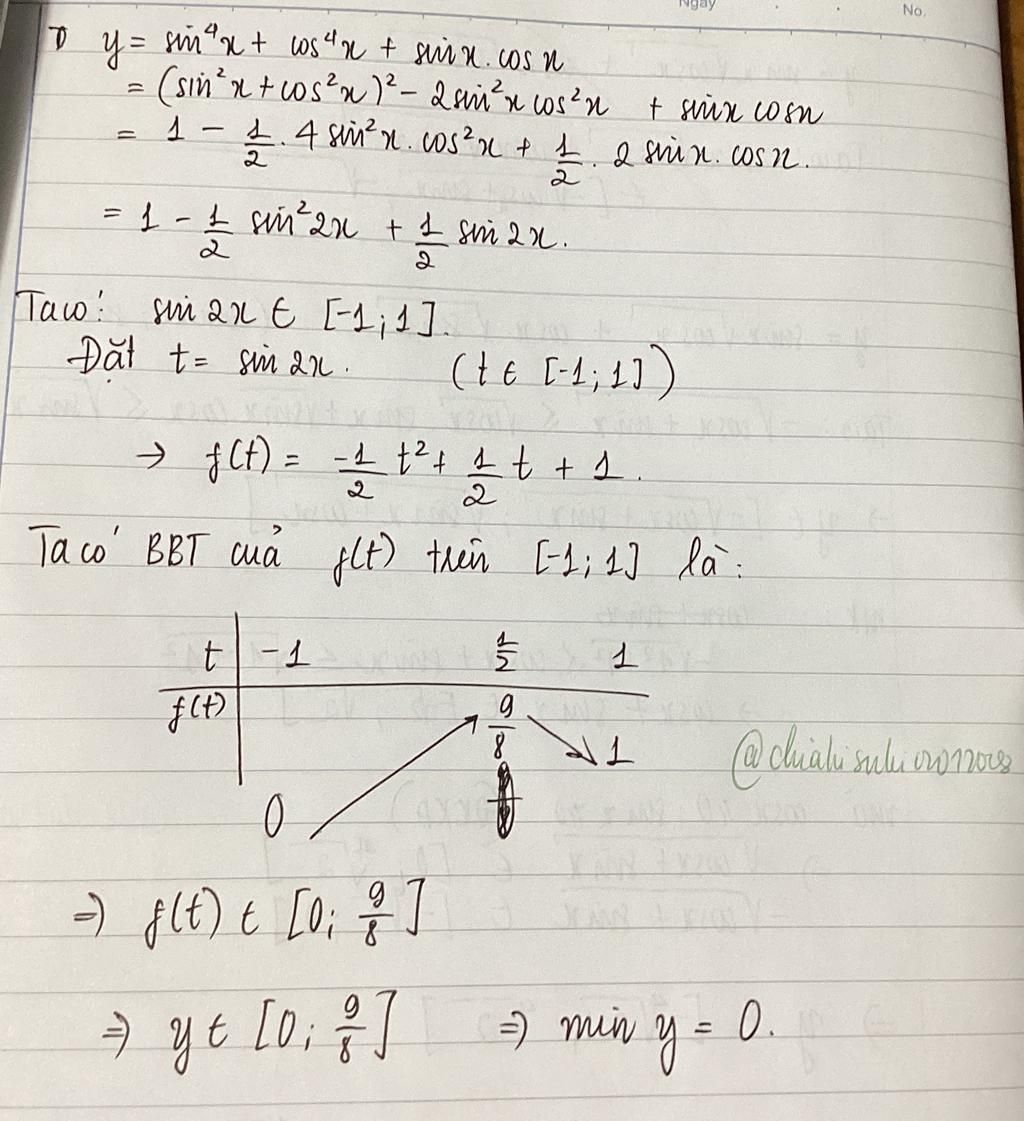 Ngày
No.
y = sin⁴x + cos⁴x + sin x . cos x
= (sin²x + cos²x)² - 2sin²x cos²x + sin x cos x
= 1 - 1/2 . 4 sin²x . cos²x + 1/2 . 2 sin x . cos x .
= 1 - 1/2 sin²2x + 1/2 sin 2x .
Ta có: sin 2x ∈ [-1; 1].
Đặt t = sin 2x . (t ∈ [-1; 1])
→ f(t) = -1/2 t² + 1/2 t + 1 .
Ta có BBT của f(t) trên [-1; 1] là:
t -1 1/2 1
f(t) 9/8
1
0
⇒ f(t) ∈ [0; 9/8]
⇒ y ∈ [0; 9/8] ⇒ min y = 0.